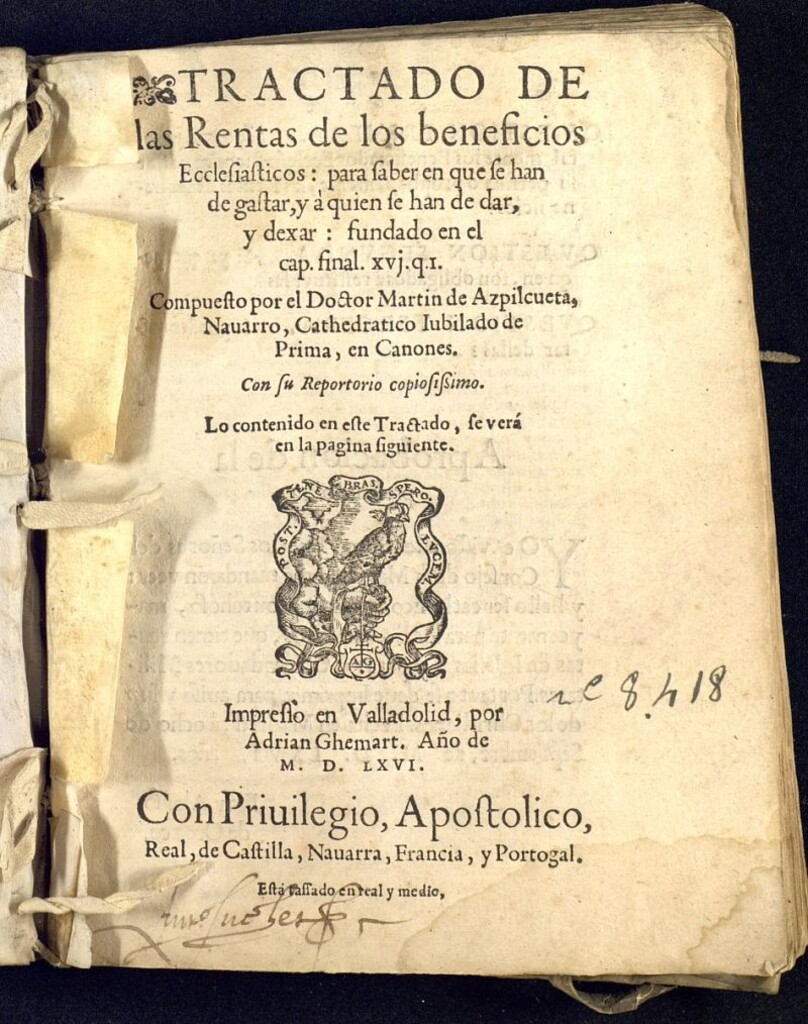 TRACTADO DE
las Rentas de los beneficios
Ecclesiaſticos : para ſaber en que ſe han
de gaſtar, y à quien ſe han de dar,
y dexar : fundado en el
cap. final. xvj. q.I.
Compueſto por el Doctor Martin de Azpilcueta,
Nauarro, Cathedratico Iubilado de
Prima, en Canones.
Con ſu Reportorio copioſiſsimo.
Lo contenido en eſte Tractado, ſe verá
en la pagina ſiguiente.
POST. TENE BRAS. SPERO. LVCEM.
Impreſſo en Valladolid, por
Adrian Ghemart. Año de
M. D. LXVI.
Con Priuilegio, Apoſtolico,
Real, de Caſtilla, Nauarra, Francia, y Portogal.
Eſtá taſſado en real y medio,
8.418